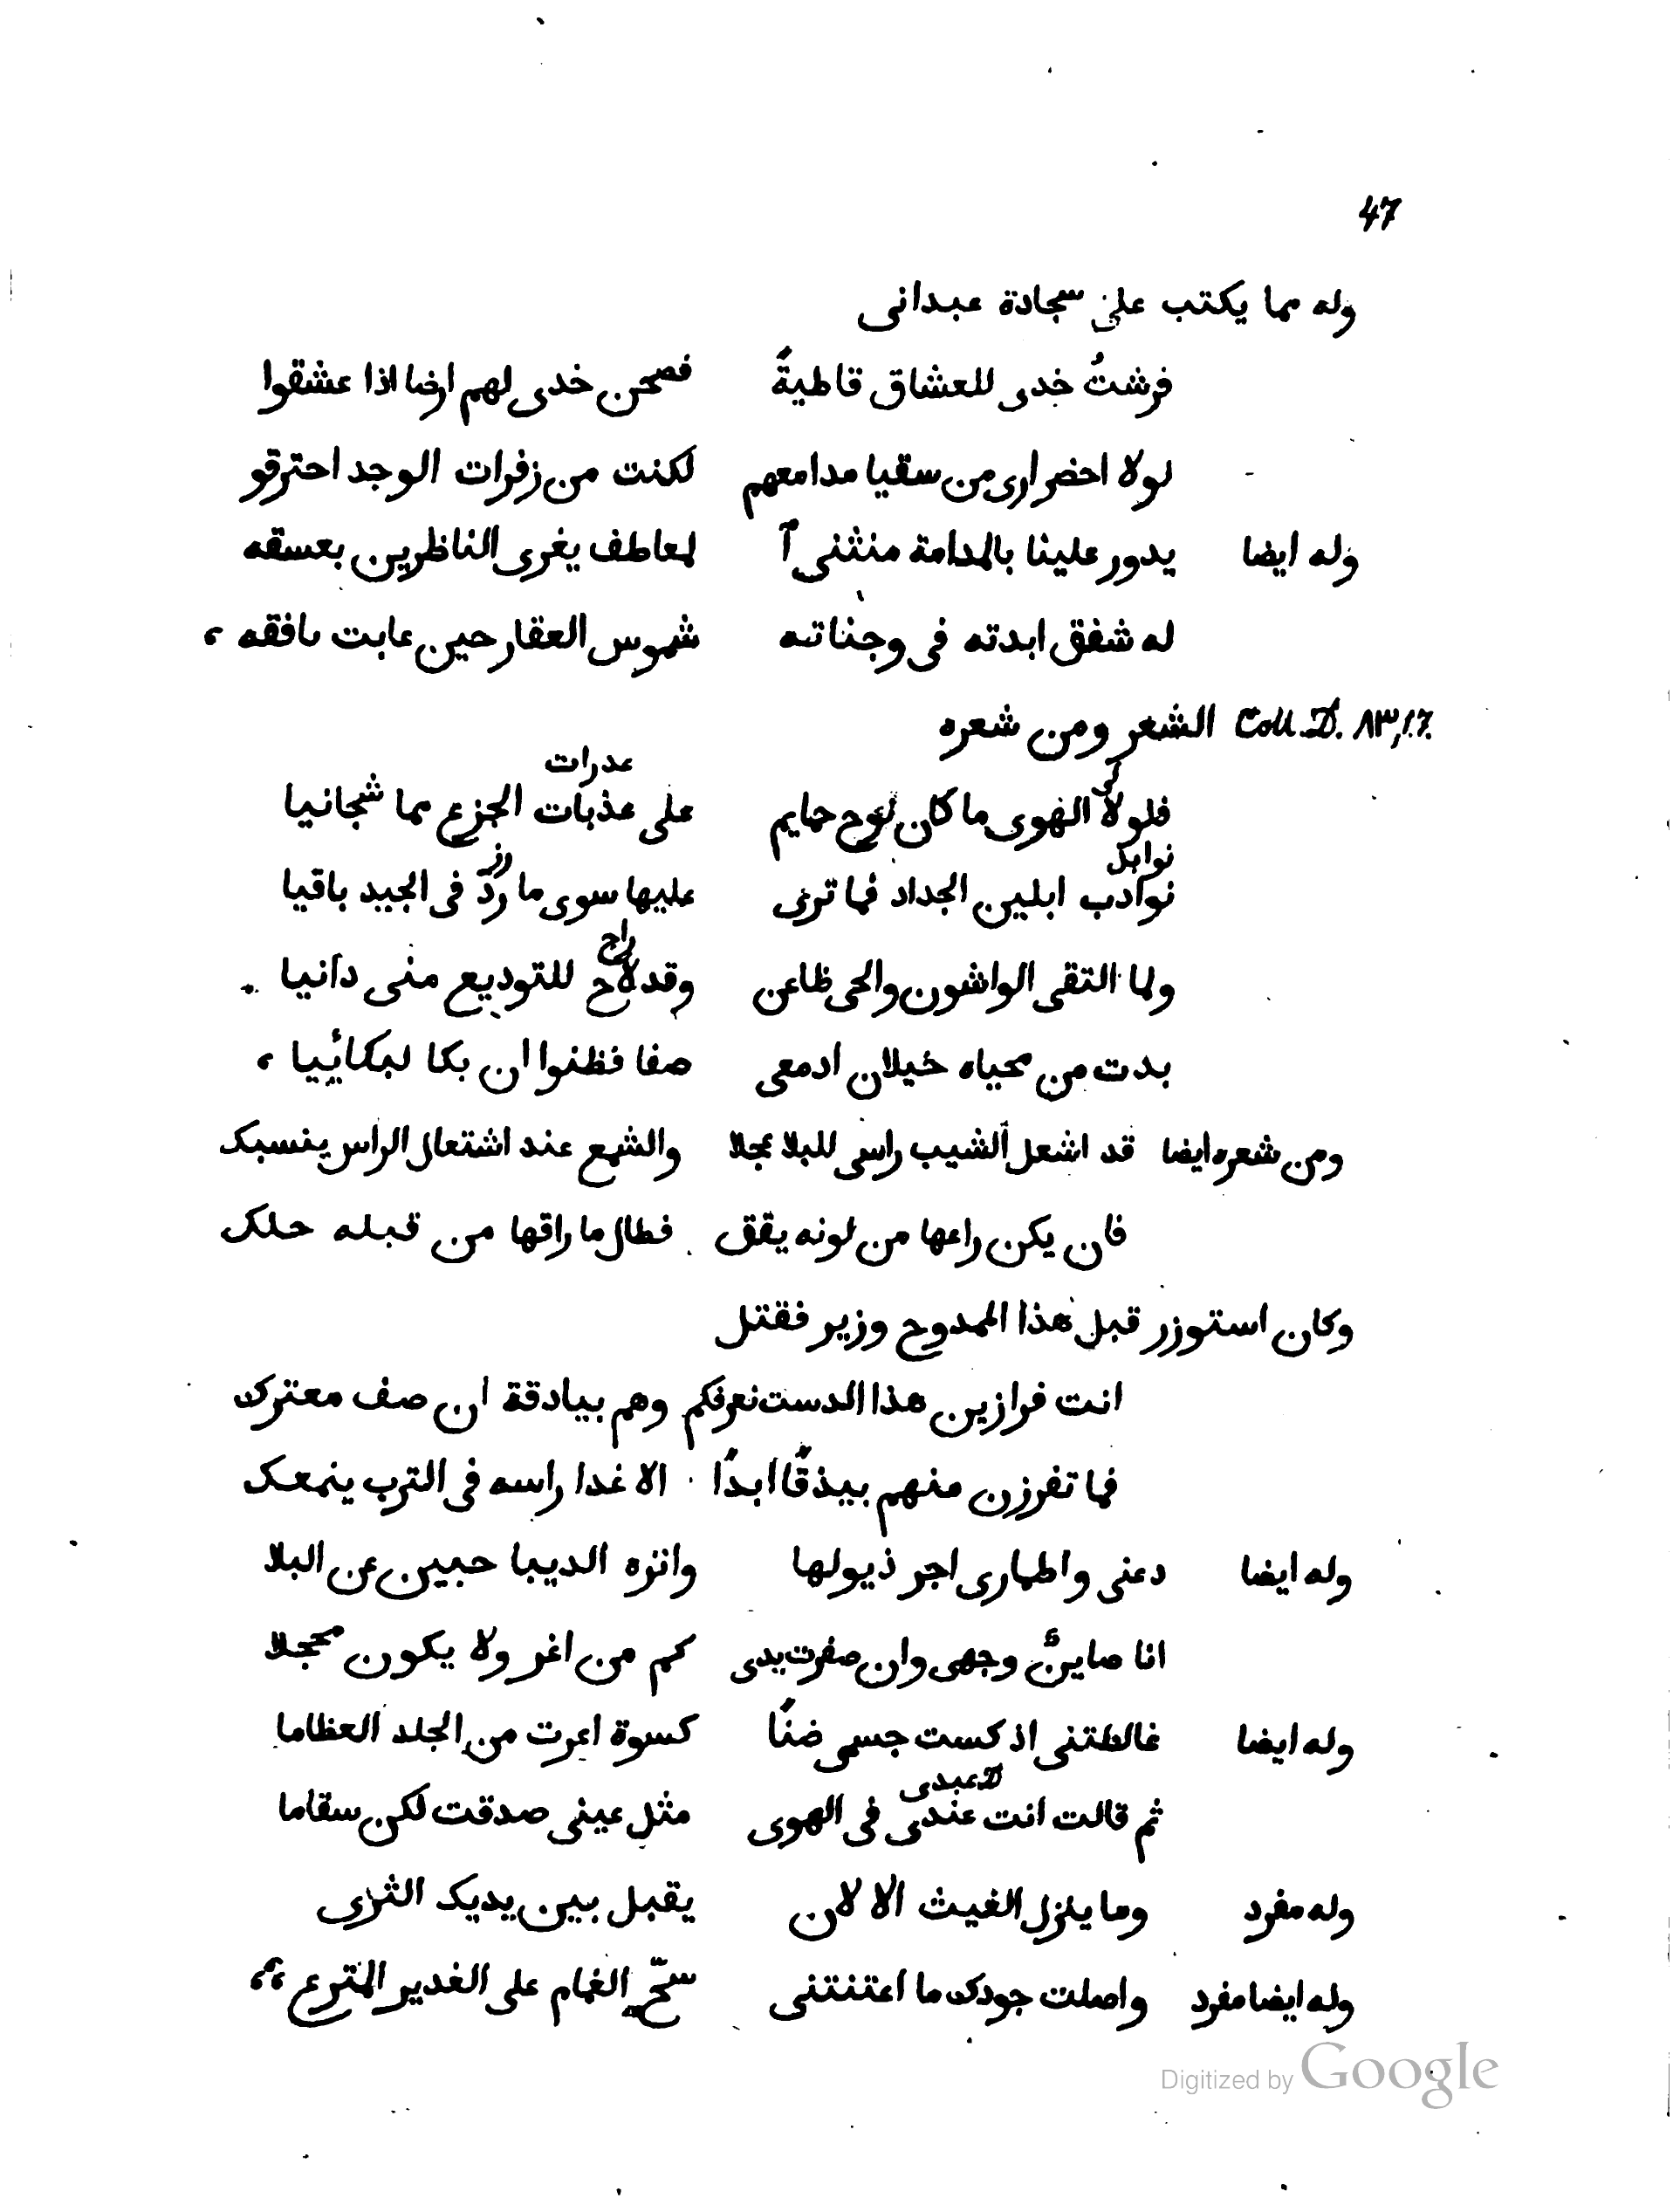 47
وله مما يكتب على سجادة عبدانى
فرشتُ خدى للعشاق قاطبةً فصحن خدى لهم ارضا اذا عشقوا
لولا احضرارى من سقيا مدامعهم لكنت من زفرات الوجد احترقو
وله ايضا يدور علينا بالمدامة منثنى آ لمعاطف يغرى الناظرين بعسقه
له شفق ابدته فى وجناته شموس العقار حين عابت بافقه ،
Coll. D. ٨٣,١٦. الشعر ومن شعره
عدرات
فلولا الهوى ما كان نوح حمايم على عذبات الجزع مما شجانيا
نوابد رز
نوادب ابلين الجداد فما ترى عليها سوى ما رد فى الجيد باقيا
راح
ولما التقى الواشون والحى ظاعن وقد لاح للتوديع منى دانيا
بدت من محياه خيلان ادمعى صفا فظنوا ان بكا لبكائيا ،
ومن شعره ايضا قد اشعل الشيب راسى للبلا عجلا والشمع عند اشتعال الراس ينسبك
فان يكن راعها من لونه يقق فطال ما راقها من قبله حلك
وكان استوزر قبل هذا الممدوح وزير فقتل
انت فرازين هذا الدست نعرفكم وهم بيادقة ان صف معترك
فما تفرزن منهم بيذقًا ابدًا الا غدا راسه فى الترب ينمعك
وله ايضا دعنى واطمارى اجر ذيولها وانزه الديبا حبين عن البلا
انا صاينٌ وجهى وان صفرت يدى كم من اغر ولا يكون محجلا
وله ايضا غالطتنى اذ كست جسمى ضنًا كسوة اعرت من الجلد العظاما
D عبدى
ثم قالت انت عندى فى الهوى مثل عينى صدقت لكن سقاما
وله مفرد وما ينزل الغيث الا لان يقبل بين يديك الثرى
وله ايضا مفرد واصلت جودك ما اعتنتنى سحّ الغمام على الغدير المترع ،،
Digitized by Google